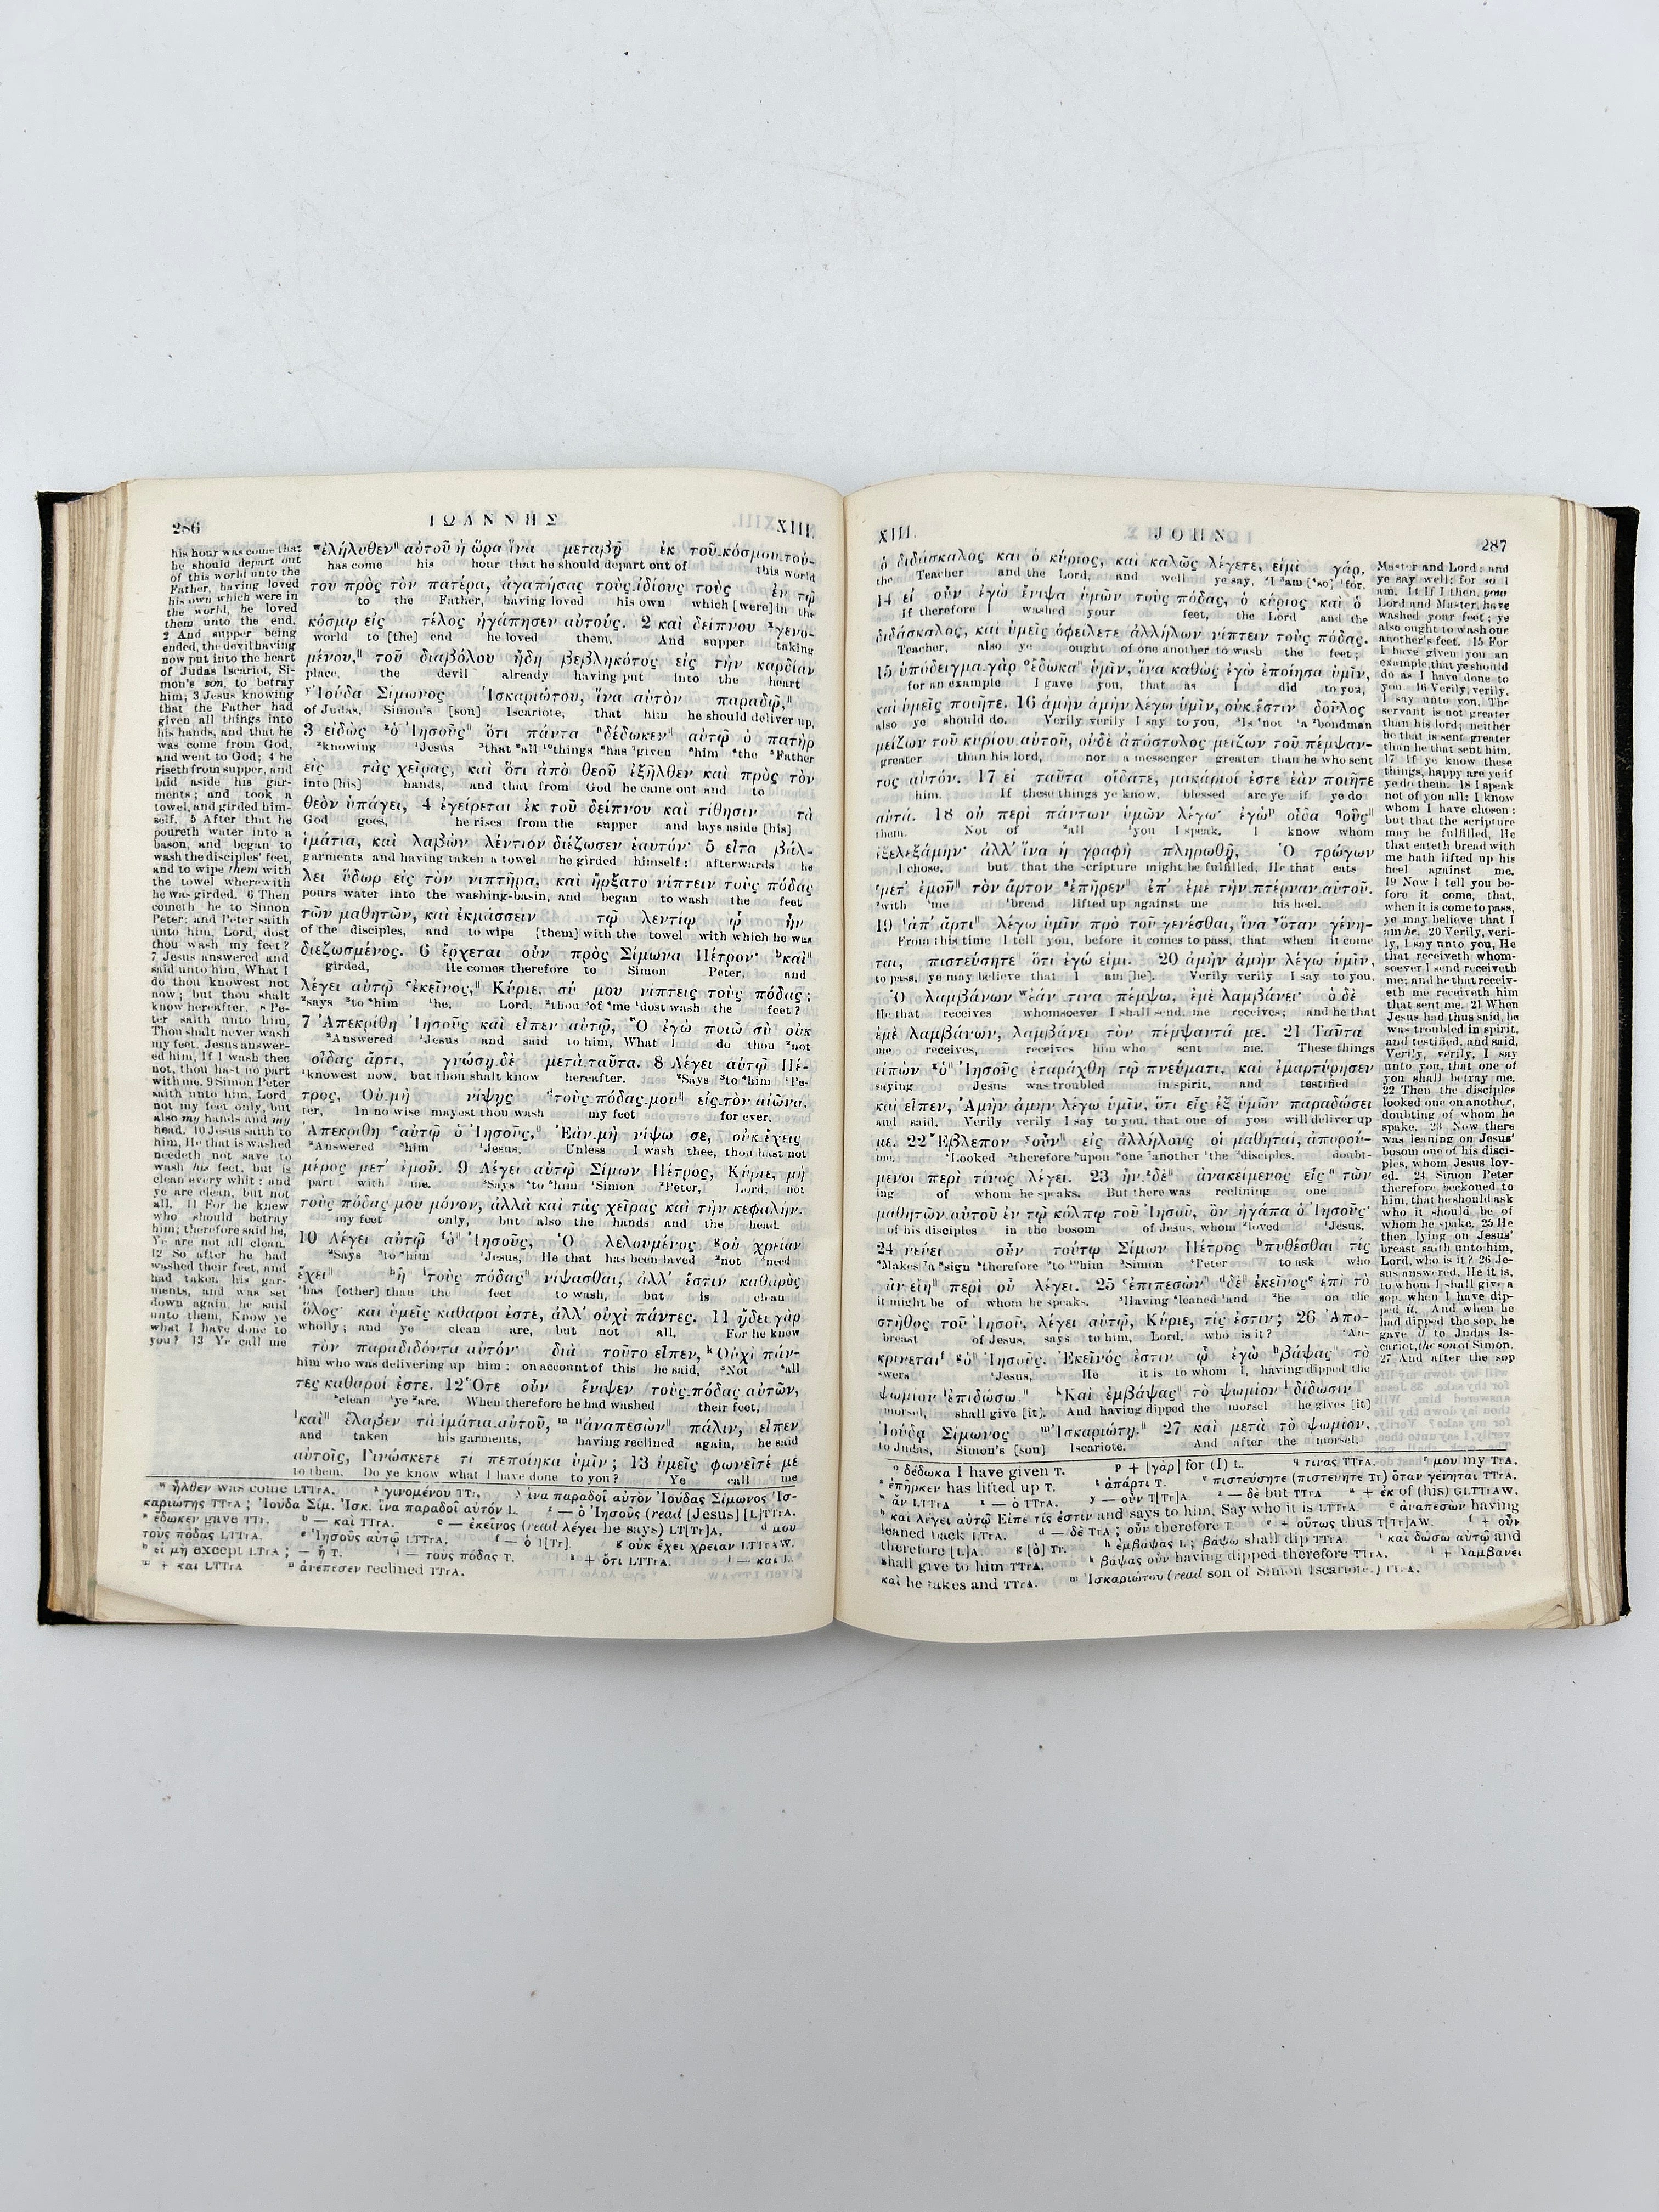 286
ΙΩΑΝΝΗΣ
XIII.
his hour was come that
he should depart out
of this world unto the
Father, having loved
his own which were in
the world, he loved
them unto the end.
2 And supper being
ended, the devil having
now put into the heart
of Judas Iscariot, Si-
mon's son, to betray
him; 3 Jesus knowing
that the Father had
given all things into
his hands, and that he
was come from God,
and went to God; 4 he
riseth from supper, and
laid aside his gar-
ments; and took a
towel, and girded him-
self. 5 After that he
poureth water into a
bason, and began to
wash the disciples' feet,
and to wipe them with
the towel wherewith
he was girded. 6 Then
cometh he to Simon
Peter: and Peter saith
unto him, Lord, dost
thou wash my feet?
7 Jesus answered and
said unto him, What I
do thou knowest not
now; but thou shalt
know hereafter. 8 Pe-
ter saith unto him,
Thou shalt never wash
my feet. Jesus answer-
ed him, If I wash thee
not, thou hast no part
with me. 9 Simon Peter
saith unto him, Lord
not my feet only, but
also my hands and my
head. 10 Jesus saith to
him, He that is washed
needeth not save to
wash his feet, but is
clean every whit: and
ye are clean, but not
all. 11 For he knew
who should betray
him; therefore said he,
Ye are not all clean.
12 So after he had
washed their feet, and
had taken his gar-
ments, and was set
down again, he said
unto them, Know ye
what I have done to
you? 13 Ye call me
ʷἐλήλυθενǁ αὐτοῦ ἡ ὥρα ἵνα μεταβῇ ἐκ τοῦ κόσμου τού-
has come his hour that he should depart out of this world
του πρὸς τὸν πατέρα, ἀγαπήσας τοὺς ἰδίους τοὺς ἐν τῷ
to the Father, having loved his own which [were] in the
κόσμῳ εἰς τέλος ἠγάπησεν αὐτούς. 2 καὶ δείπνου ˣγενο-
world to [the] end he loved them. And supper taking
μένου,ǁ τοῦ διαβόλου ἤδη βεβληκότος εἰς τὴν καρδίαν
place, the devil already having put into the heart
ʸἸούδα Σίμωνος Ἰσκαριώτου, ἵνα αὐτὸν παραδῷ,ǁ
of Judas, Simon's [son] Iscariote, that him he should deliver up,
3 εἰδὼς ᶻὁ Ἰησοῦςǁ ὅτι πάντα ᵃδέδωκενǁ αὐτῷ ὁ πατὴρ
²knowing ¹Jesus ³that ⁹all ¹⁰things ⁶has ⁷given ⁸him ⁴the ⁵Father
εἰς τὰς χεῖρας, καὶ ὅτι ἀπὸ θεοῦ ἐξῆλθεν καὶ πρὸς τὸν
into [his] hands, and that from God he came out and to
θεὸν ὑπάγει, 4 ἐγείρεται ἐκ τοῦ δείπνου καὶ τίθησιν τὰ
God goes, he rises from the supper and lays aside [his]
ἱμάτια, καὶ λαβὼν λέντιον διέζωσεν ἑαυτόν· 5 εἶτα βάλ-
garments and having taken a towel he girded himself: afterwards he
λει ὕδωρ εἰς τὸν νιπτῆρα, καὶ ἤρξατο νίπτειν τοὺς πόδας
pours water into the washing-basin, and began to wash the feet
τῶν μαθητῶν, καὶ ἐκμάσσειν τῷ λεντίῳ ᾧ ἦν
of the disciples, and to wipe [them] with the towel with which he was
διεζωσμένος. 6 ἔρχεται οὖν πρὸς Σίμωνα Πέτρον· ᵇκαὶǁ
girded, He comes therefore to Simon Peter, and
λέγει αὐτῷ ᶜἐκεῖνος,ǁ Κύριε, σύ μου νίπτεις τοὺς πόδας;
²says ³to ⁴him ¹he, Lord, ²thou ³of ⁴me ¹dost wash the feet?
7 Ἀπεκρίθη Ἰησοῦς καὶ εἶπεν αὐτῷ, Ὃ ἐγὼ ποιῶ σὺ οὐκ
²Answered ¹Jesus and said to him, What I do thou ²not
οἶδας ἄρτι, γνώσῃ δὲ μετὰ ταῦτα. 8 Λέγει αὐτῷ Πέ-
¹knowest now, but thou shalt know hereafter. ²Says ³to ⁴him ¹Pe-
τρος, Οὐ μὴ νίψῃς ᵈτοὺς πόδας μουǁ εἰς τὸν αἰῶνα.
ter, In no wise mayest thou wash my feet for ever.
Ἀπεκρίθη ᵉαὐτῷ ὁ Ἰησοῦς,ǁ Ἐὰν μὴ νίψω σε, οὐκ ἔχεις
²Answered ³him ¹Jesus, Unless I wash thee, thou hast not
μέρος μετ᾽ ἐμοῦ. 9 Λέγει αὐτῷ Σίμων Πέτρος, Κύριε, μὴ
part with me. ³Says ⁴to ⁵him ¹Simon ²Peter, Lord, not
τοὺς πόδας μου μόνον, ἀλλὰ καὶ τὰς χεῖρας καὶ τὴν κεφαλήν.
my feet only, but also the hands and the head.
10 Λέγει αὐτῷ ᶠὁǁ Ἰησοῦς, Ὁ λελουμένος ᵍοὐ χρείαν
²Says ³to ⁴him ¹Jesus, He that has been laved ²not ³need
ἔχειǁ ʰἢǁ ⁱτοὺς πόδαςǁ νίψασθαι, ἀλλ᾽ ἔστιν καθαρὸς
¹has [other] than the feet to wash, but is clean
ὅλος· καὶ ὑμεῖς καθαροί ἐστε, ἀλλ᾽ οὐχὶ πάντες. 11 ᾔδει γὰρ
wholly; and ye clean are, but not all. For he knew
τὸν παραδιδόντα αὐτόν· διὰ τοῦτο εἶπεν, ᵏΟὐχὶ πάν-
him who was delivering up him: on account of this he said, ³Not ⁴all
τες καθαροί ἐστε. 12 Ὅτε οὖν ἔνιψεν τοὺς πόδας αὐτῶν,
⁵clean ¹ye ²are. When therefore he had washed their feet,
ˡκαὶǁ ἔλαβεν τὰ ἱμάτια αὐτοῦ, ᵐ ⁿἀναπεσὼνǁ πάλιν, εἶπεν
and taken his garments, having reclined again, he said
αὐτοῖς, Γινώσκετε τί πεποίηκα ὑμῖν; 13 ὑμεῖς φωνεῖτέ με
to them. Do ye know what I have done to you? Ye call me
ʷ ἦλθεν was come LTTrA. ˣ γινομένου TTr. ʸ ἵνα παραδοῖ αὐτὸν Ἰούδας Σίμωνος Ἰσ-
καριώτης TTrA; Ἰούδα Σίμ. Ἰσκ. ἵνα παραδοῖ αὐτόν L. ᶻ — ὁ Ἰησοῦς (read [Jesus] [L]TTrA.
ᵃ ἔδωκεν gave TTr. ᵇ — καὶ TTrA. ᶜ — ἐκεῖνος (read λέγει he says) LT[Tr]A. ᵈ μου
τοὺς πόδας LTTrA. ᵉ Ἰησοῦς αὐτῷ LTTrA. ᶠ — ὁ T[Tr]. ᵍ οὐκ ἔχει χρείαν LTTrAW.
ʰ εἰ μὴ except LTrA; — ἢ T. ⁱ — τοὺς πόδας T. ᵏ + ὅτι LTTrA. ˡ — καὶ L.
ᵐ + καὶ LTTrA ⁿ ἀνέπεσεν reclined TTrA.
XIII.
JOHN.
287
ὁ διδάσκαλος καὶ ὁ κύριος, καὶ καλῶς λέγετε, εἰμὶ γάρ.
the Teacher and the Lord, and well ye say, ²I ³am [⁴so] ¹for.
14 εἰ οὖν ἐγὼ ἔνιψα ὑμῶν τοὺς πόδας, ὁ κύριος καὶ ὁ
If therefore I washed your feet, the Lord and the
διδάσκαλος, καὶ ὑμεῖς ὀφείλετε ἀλλήλων νίπτειν τοὺς πόδας.
Teacher, also ye ought of one another to wash the feet;
15 ὑπόδειγμα γὰρ ᵒἔδωκαǁ ὑμῖν, ἵνα καθὼς ἐγὼ ἐποίησα ὑμῖν,
for an example I gave you, that as I did to you,
καὶ ὑμεῖς ποιῆτε. 16 ἀμὴν ἀμὴν λέγω ὑμῖν, οὐκ ἔστιν δοῦλος
also ye should do. Verily verily I say to you, ³Is ⁴not ¹a ²bondman
μείζων τοῦ κυρίου αὐτοῦ, οὐδὲ ἀπόστολος μείζων τοῦ πέμψαν-
greater than his lord, nor a messenger greater than he who sent
τος αὐτόν. 17 εἰ ταῦτα οἴδατε, μακάριοί ἐστε ἐὰν ποιῆτε
him. If these things ye know, blessed are ye if ye do
αὐτά. 18 οὐ περὶ πάντων ὑμῶν λέγω· ἐγὼᵖ οἶδα ᑫοὓςǁ
them. Not of ²all ¹you I speak. I know whom
ἐξελεξάμην· ἀλλ᾽ ἵνα ἡ γραφὴ πληρωθῇ, Ὁ τρώγων
I chose, but that the scripture might be fulfilled, He that eats
ʳμετ᾽ ἐμοῦǁ τὸν ἄρτον ˢἐπῆρενǁ ἐπ᾽ ἐμὲ τὴν πτέρναν αὐτοῦ.
²with ³me ¹bread lifted up against me his heel.
19 ᵗἀπ᾽ ἄρτιǁ λέγω ὑμῖν πρὸ τοῦ γενέσθαι, ἵνα ᵛὅταν γένη-
From this time I tell you, before it comes to pass, that when it come
ται, πιστεύσητεǁ ὅτι ἐγώ εἰμι. 20 ἀμὴν ἀμὴν λέγω ὑμῖν,
to pass, ye may believe that I am [he]. Verily verily I say to you,
Ὁ λαμβάνων ʷἐάνǁ τινα πέμψω, ἐμὲ λαμβάνει· ὁ δὲ
He that receives whomsoever I shall send, me receives; and he that
ἐμὲ λαμβάνων, λαμβάνει τὸν πέμψαντά με. 21 Ταῦτα
me receives, receives him who sent me. These things
εἰπὼν ˣὁǁ Ἰησοῦς ἐταράχθη τῷ πνεύματι, καὶ ἐμαρτύρησεν
saying Jesus was troubled in spirit, and testified
καὶ εἶπεν, Ἀμὴν ἀμὴν λέγω ὑμῖν, ὅτι εἷς ἐξ ὑμῶν παραδώσει
and said, Verily verily I say to you, that one of you will deliver up
με. 22 Ἔβλεπον ʸοὖνǁ εἰς ἀλλήλους οἱ μαθηταί, ἀπορού-
me. ⁴Looked ³therefore ⁵upon ⁶one ⁷another ¹the ²disciples, doubt-
μενοι περὶ τίνος λέγει. 23 ἦν ᶻδὲǁ ἀνακείμενος εἷς ᵃ τῶν
ing of whom he speaks. But there was reclining one
μαθητῶν αὐτοῦ ἐν τῷ κόλπῳ τοῦ Ἰησοῦ, ὃν ἠγάπα ὁ Ἰησοῦς·
of his disciples in the bosom of Jesus, whom ²loved ¹Jesus.
24 νεύει οὖν τούτῳ Σίμων Πέτρος ᵇπυθέσθαι τίς
⁴Makes ⁵a ⁶sign ³therefore ⁷to ⁸him ¹Simon ²Peter to ask who
ἂν εἴηǁ περὶ οὗ λέγει. 25 ᶜἐπιπεσὼνǁ ᵈδὲǁ ἐκεῖνοςᵉ ἐπὶ τὸ
it might be of whom he speaks. ³Having ⁴leaned ¹and ²he on the
στῆθος τοῦ Ἰησοῦ, λέγει αὐτῷ, Κύριε, τίς ἐστιν; 26 Ἀπο-
breast of Jesus, says to him, Lord, who is it? ²An-
κρίνεταιᶠ ᵍὁǁ Ἰησοῦς, Ἐκεῖνός ἐστιν ᾧ ἐγὼ ʰβάψας τὸ
³swers ¹Jesus, He it is to whom I, having dipped the
ψωμίον ἐπιδώσω.ǁ ᵏΚαὶ ἐμβάψαςǁ τὸ ψωμίον ˡδίδωσιν
morsel, shall give [it]. And having dipped the morsel he gives [it]
Ἰούδᾳ Σίμωνος ᵐἸσκαριώτῃ.ǁ 27 καὶ μετὰ τὸ ψωμίον,
to Judas, Simon's [son] Iscariote. And after the morsel,
Master and Lord: and
ye say well; for so I
am. 14 If I then, your
Lord and Master, have
washed your feet; ye
also ought to wash one
another's feet. 15 For
I have given you an
example, that ye should
do as I have done to
you 16 Verily, verily,
I say unto you, The
servant is not greater
than his lord; neither
he that is sent greater
than he that sent him.
17 If ye know these
things, happy are ye if
ye do them. 18 I speak
not of you all: I know
whom I have chosen:
but that the scripture
may be fulfilled, He
that eateth bread with
me hath lifted up his
heel against me.
19 Now I tell you be-
fore it come, that,
when it is come to pass,
ye may believe that I
am he. 20 Verily, veri-
ly, I say unto you, He
that receiveth whom-
soever I send receiveth
me; and he that receiv-
eth me receiveth him
that sent me. 21 When
Jesus had thus said, he
was troubled in spirit,
and testified, and said,
Verily, verily, I say
unto you, that one of
you shall betray me.
22 Then the disciples
looked one on another,
doubting of whom he
spake. 23 Now there
was leaning on Jesus'
bosom one of his disci-
ples, whom Jesus lov-
ed. 24 Simon Peter
therefore beckoned to
him, that he should ask
who it should be of
whom he spake. 25 He
then lying on Jesus'
breast saith unto him,
Lord, who is it? 26 Je-
sus answered, He it is,
to whom I shall give a
sop, when I have dip-
ped it. And when he
had dipped the sop, he
gave it to Judas Is-
cariot, the son of Simon.
27 And after the sop
ᵒ δέδωκα I have given T. ᵖ + [γὰρ] for (I) L. ᑫ τίνας TTrA. ʳ μου my TrA.
ˢ ἐπῆρκεν has lifted up T. ᵗ ἀπάρτι T. ᵛ πιστεύσητε (πιστεύητε Tr) ὅταν γένηται TTrA.
ʷ ἄν LTTrA ˣ — ὁ TTrA. ʸ — οὖν T[Tr]A. ᶻ — δὲ but TTrA ᵃ + ἐκ of (his) GLTTrAW.
ᵇ καὶ λέγει αὐτῷ Εἰπὲ τίς ἐστιν and says to him, Say who it is LTTrA. ᶜ ἀναπεσὼν having
leaned back LTrA. ᵈ — δὲ TrA; οὖν therefore T. ᵉ + οὕτως thus T[Tr]AW. ᶠ + οὖν
therefore [L]A. ᵍ [ὁ] Tr. ʰ ἐμβάψας L; βάψω shall dip TTrA. ⁱ καὶ δώσω αὐτῷ and
shall give to him TTrA. ᵏ βάψας οὖν having dipped therefore TTrA. ˡ + λαμβάνει
καὶ he takes and TTrA. ᵐ Ἰσκαριώτου (read son of Simon Iscariote.) TTrA.